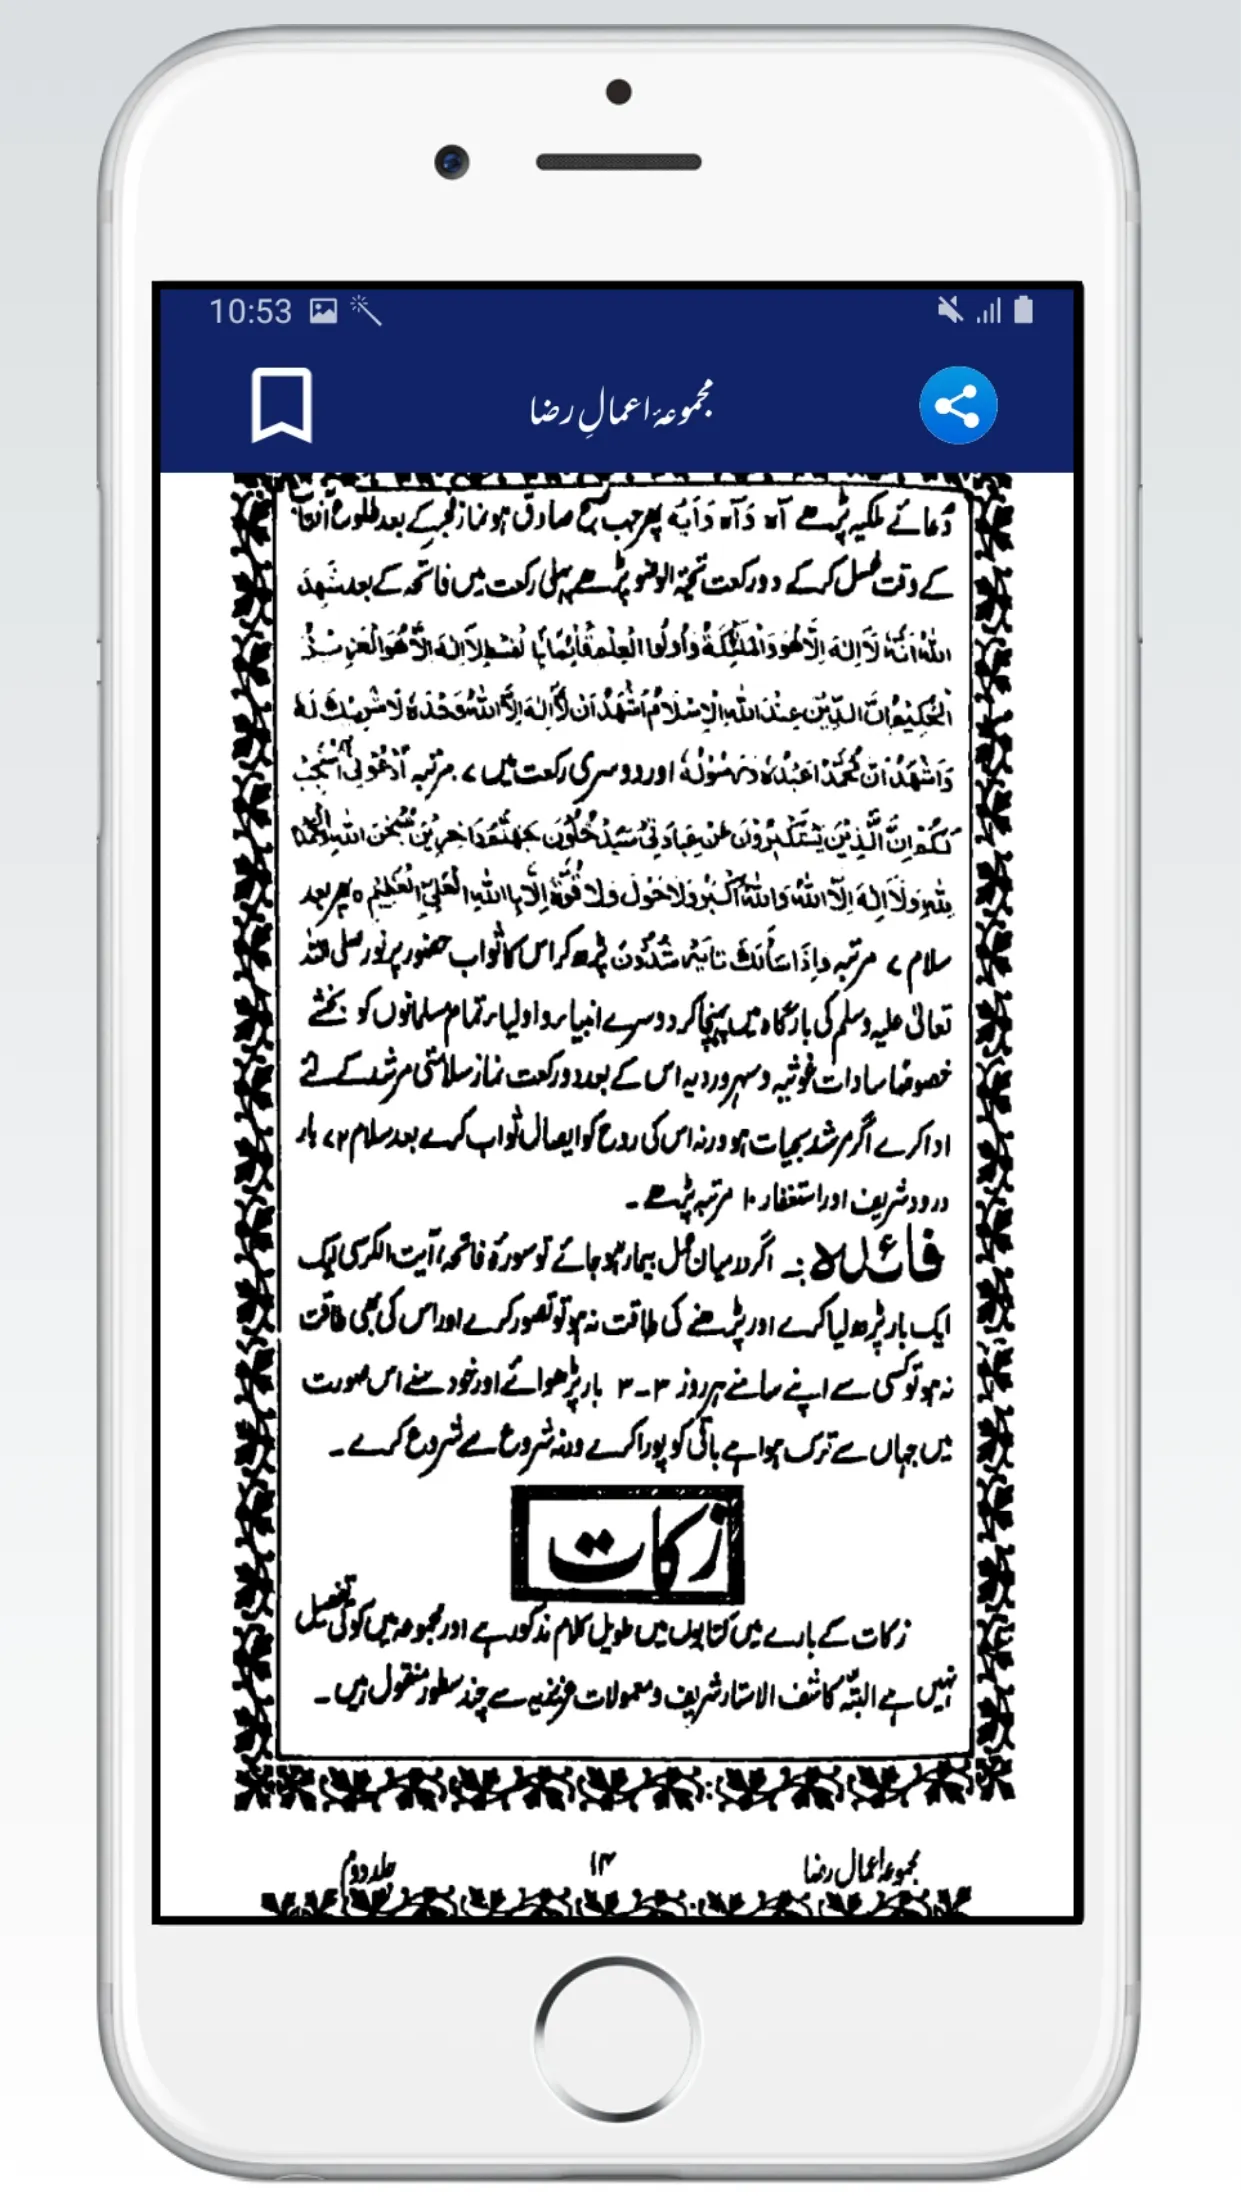 10:53
مجموعۂ اعمالِ رضا
دُعائے ملکیہ پڑھے آہ دَآہ دَآبِہ پھر جب صبح صادق ہو نماز فجر کے بعد طلوع آفتاب
کے وقت غسل کرکے دو رکعت تحیۃ الوضو پڑھے پہلی رکعت میں فاتحہ کے بعد شَہِدَ
اللہُ اَنَّہٗ لَآ اِلٰہَ اِلَّا ھُوَ وَالْمَلٰٓئِکَۃُ وَاُولُوا الْعِلْمِ قَآئِمًا بِالْقِسْطِ لَآ اِلٰہَ اِلَّا ھُوَ الْعَزِیْزُ
الْحَکِیْمُ اِنَّ الدِّیْنَ عِنْدَ اللہِ الْاِسْلَامُ اَشْھَدُ اَنْ لَّآ اِلٰہَ اِلَّا اللہُ وَحْدَہٗ لَا شَرِیْکَ لَہٗ
وَاَشْھَدُ اَنَّ مُحَمَّدًا عَبْدُہٗ وَرَسُوْلُہٗ اور دوسری رکعت میں ۷ مرتبہ اُدْعُوْنِیْ اَسْتَجِبْ
لَکُمْ اِنَّ الَّذِیْنَ یَسْتَکْبِرُوْنَ عَنْ عِبَادَتِیْ سَیَدْخُلُوْنَ جَھَنَّمَ دَاخِرِیْنَ سُبْحٰنَ اللہِ وَالْحَمْدُ
لِلّٰہِ وَلَآ اِلٰہَ اِلَّا اللہُ وَاللہُ اَکْبَرُ وَلَا حَوْلَ وَلَا قُوَّۃَ اِلَّا بِاللہِ الْعَلِیِّ الْعَظِیْمِ ہ پھر بعد
سلام ۷ مرتبہ وَاِذَا سَأَلَکَ تا یَرْشُدُوْنَ پڑھ کر اس کا ثواب حضور پر نور صلی اللہ
تعالیٰ علیہ وسلم کی بارگاہ میں پہنچا کر دوسرے انبیاء و اولیاء تمام مسلمانوں کو بخشے
خصوصًا سادات غوثیہ و سہروردیہ اس کے بعد دو رکعت نماز سلامتی مرشد کے لئے
ادا کرے اگر مرشد بحیات ہو ورنہ اس کی روح کو ایصال ثواب کرے بعد سلام ۷۲ بار
درود شریف اور استغفار ۱۰ مرتبہ پڑھے۔
فائدہ:۔ اگر درمیان عمل بیمار ہو جائے تو سورۂ فاتحہ، آیت الکرسی ایک
ایک بار پڑھ لیا کرے اور پڑھنے کی طاقت نہ ہو تو تصور کرے اور اس کی بھی طاقت
نہ ہو تو کسی سے اپنے سامنے ہر روز ۳۔۳ بار پڑھوائے اور خود سنے اس صورت
میں جہاں سے ترک ہوا ہے باقی کو پورا کرے ورنہ شروع سے شروع کرے۔
زکات
زکات کے بارے میں کتابوں میں طویل کلام مذکور ہے اور مجموعہ میں کوئی تفصیل
نہیں ہے البتہ کاشف الاستار شریف و معمولات عزیزیہ سے چند سطور منقول ہیں۔
مجموعہ اعمال رضا ۱۴ جلد دوم